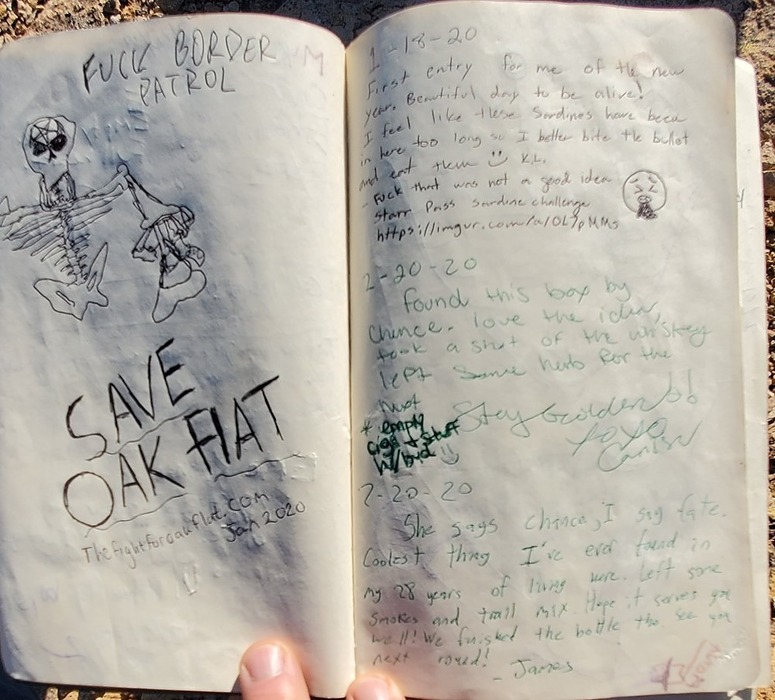 FUCK BORDER
PATROL
SAVE
OAK FlAT
Thefightforoakflat.com
Jan 2020
1-18-20
First entry for me of the new
year. Beautiful day to be alive!
I feel like these Sardines have been
in here too long so I better bite the bullet
and eat them :) K.L.
- Fuck that was not a good idea
Starr Pass Sardine challenge
https://imgur.com/a/OL7pMMs
2-20-20
Found this box by
chance. love the idea,
took a shot of the whiskey
left some herb for the
next
* empty
cigar + stuff
w/bud :)
Stay Golden
XOXO
2-20-20
She says chance, I say fate.
Coolest thing I've ever found in
my 28 years of living here. Left some
smokes and trail mix. Hope it serves you
well! We finished the bottle tho. See you
next round!
- James